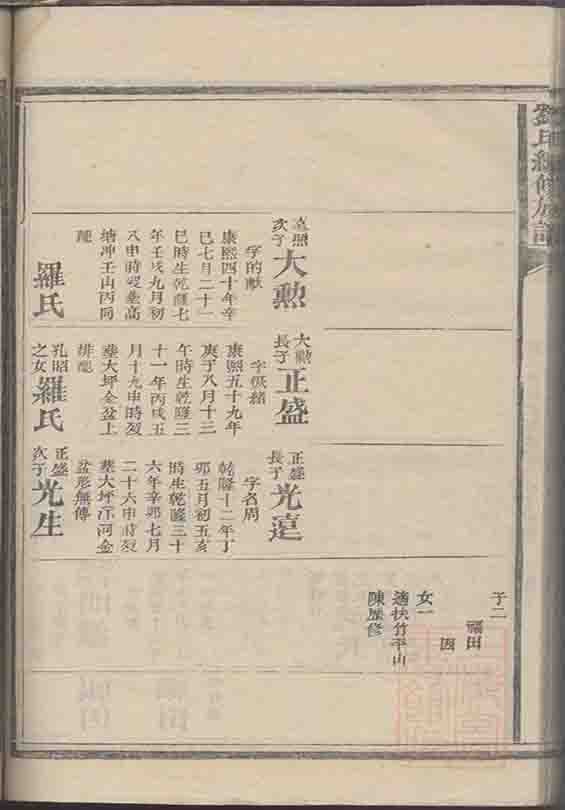 子二
福田
女一
適扶竹平山
陳歷修
嘉照
次子
大勲
字的献
康熙四十年辛
巳七月二十一
巳時生乾隆七
年壬戌九月初
八申時歿塟高
塘冲壬山丙向
羅氏
大勲
長子
正盛
康熙五十九年
庚子八月十三
午時生乾隆三
十一年丙戌五
月十九申時歿
塟大坪金盆上
排
孔昭
之女
羅氏
正盛
長子
光
字名周
乾隆十二年丁
卯五月初五亥
時生乾隆三十
六年辛卯七月
二十六申時歿
塟大坪河金
盆形無傳
正盛
次子
光生